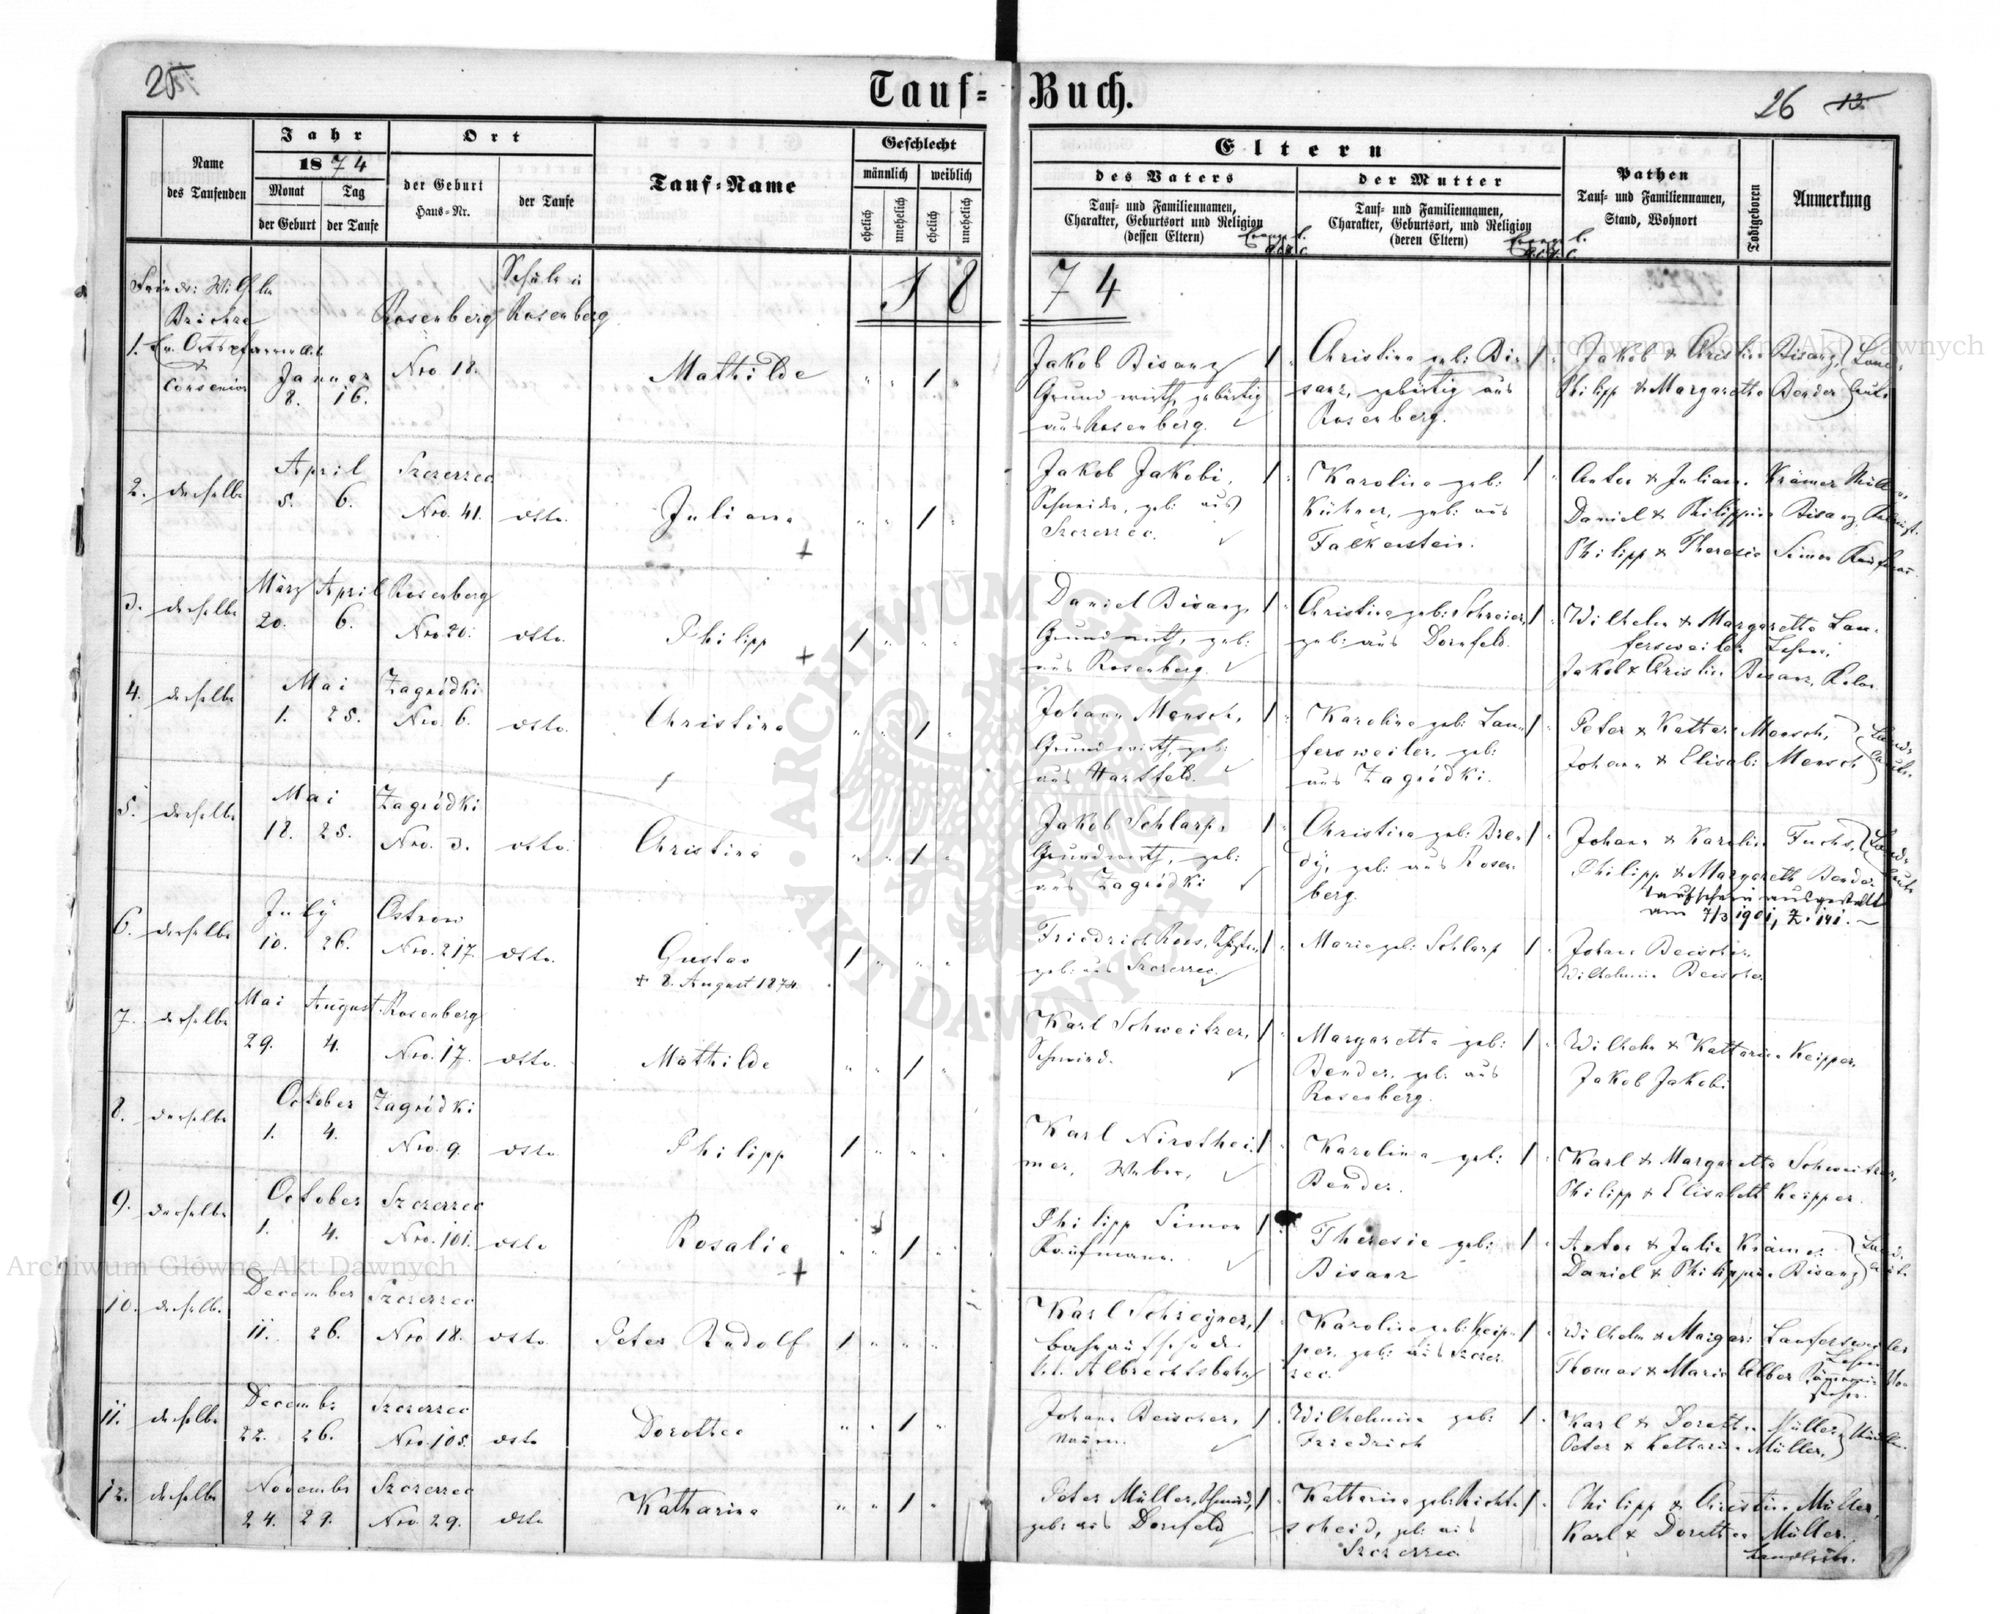 25.
Tauf-Buch.
26 13.
Name
des Taufenden
Jahr
1874
Monat
der Geburt
Tag
der Taufe
Ort
der Geburt
Haus-Nr.
der Taufe
Tauf-Name
Geschlecht
männlich weiblich
ehelich unehelich ehelich unehelich
Eltern
des Vaters
Tauf- und Familiennamen,
Charakter, Geburtsort und Religion
(dessen Eltern)
der Mutter
Tauf- und Familiennamen,
Charakter, Geburtsort, und Religion
(deren Eltern)
Pathen
Tauf- und Familiennamen,
Stand, Wohnort
Todtgeboren
Anmerkung
1874
1. Ev. Ortspfarrer
Consenior
Januar
8. 16.
Rosenberg
Nro 18.
Schule in
Rosenberg
Mathilde
1
Jakob Bisanz
Grundwirth, gebürtig
aus Rosenberg.
Christina geb: Bi-
sanz, gebürtig aus
Rosenberg.
Jakob & Christine Bisanz,
Philipp & Margaretha Bender
2. derselbe
April
5. 6.
Szczerzec
Nro. 41.
dtto.
Juliana
1
Jakob Jakobi,
Schneider, geb: aus
Szczerzec.
Karolina geb:
Kühner, geb: aus
Falkenstein.
Anton & Julian. Krämer
Daniel & Philippine Bisanz
Philipp & Theresia Simon
3. derselbe
März April
20. 6.
Rosenberg
Nro 20.
dtto.
Philipp
1
Daniel Bisanz,
Grundwirth, geb:
aus Rosenberg.
Christina geb: Schreier,
geb: aus Dornfeld.
Wilhelm & Margaretha Lau-
fersweiler
Jakob & Christine Bisanz
4. derselbe
Mai
1. 25.
Zagródki
Nro. 6.
dtto.
Christina
1
Johann Mensch,
Grundwirth, geb:
aus Hartfeld.
Karolina geb: Lau-
fersweiler, geb:
aus Zagródki.
Peter & Kathar: Mensch,
Johann & Elisab: Mensch
5. derselbe
Mai
18. 25.
Zagródki
Nro. 3.
dtto.
Christina
1
Jakob Schlarp,
Grundwirth, geb:
aus Zagródki
Christina geb: Bren-
dy, geb: aus Rosen-
berg.
Johann & Karolin Fuchs,
Philipp & Margareth Bender
Taufschein ausgestellt
am 7/3 1901, Z. 141.
6. derselbe
July
10. 26.
Ostrow
Nro. 217.
dtto.
Gustav
+ 8. August 1874.
1
Friedrich Roos,
geb: aus Szczerzec.
Maria geb: Schlarp
Johann Beischer
Wilhelmine Beischer
7. derselbe
Mai August
29. 4.
Rosenberg
Nro. 17.
dtto.
Mathilde
1
Karl Schweitzer,
Schmied.
Margaretha geb:
Bender, geb: aus
Rosenberg.
Wilhelm & Katharina Keipper,
Jakob Jakobi
8. derselbe
October
1. 4.
Zagródki
Nro. 9.
dtto.
Philipp
1
Karl Nirsthei-
mer, Weber,
Karolina geb:
Bender.
Karl & Margaretha Schweitzer,
Philipp & Elisabeth Keipper.
9. derselbe
October
1. 4.
Szczerzec
Nro. 101.
dtto
Rosalie
1
Philipp Simon
Kaufmann.
Theresie geb:
Bisanz
Anton & Julie Krämer
Daniel & Philippine Bisanz
10. derselbe
December
11. 26.
Szczerzec
Nro 18.
dtto.
Peter Rudolf
1
Karl Schreyner,
Bahnaufseher d.
Albrechtsbahn
Karolina geb: Keip-
per, geb: aus Szczer-
zec.
Wilhelm & Margar: Laufersweiler
Thomas & Marie Elber
11. derselbe
Decembr
22. 26.
Szczerzec
Nro 105.
dtto
Dorothea
1
Johann Beischer,
Wilhelmine geb:
Friedrich
Karl & Dorothea Müller
Peter & Katharina Müller,
12. derselbe
Novembr
24. 29.
Szczerzec
Nro. 29.
dtto
Katharina
1
Peter Müller, Schmied,
geb: aus Dornfeld
Katharina geb: Richt-
scheid, geb: aus
Szczerzec
Philipp & Christine Müller,
Karl & Dorothea Müller.
Landleute.
ARCHIWUM GŁÓWNE AKT DAWNYCH
Archiwum Główne Akt Dawnych
Archiwum Główne Akt Dawnych